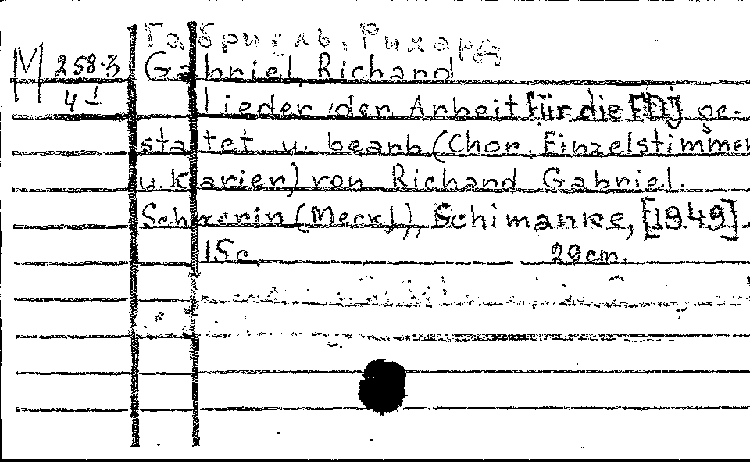 Габриэль, Рихард
М 258-3
41
Gabriel, Richard
Lieder der Arbeit für die FDJ ge-
staltet u. bearb (Chor, Einzelstimmen
u. Klavier) von Richard Gabriel.
Schwerin (Meckl), Schimanke, [1949].
15 c. 29 cm.